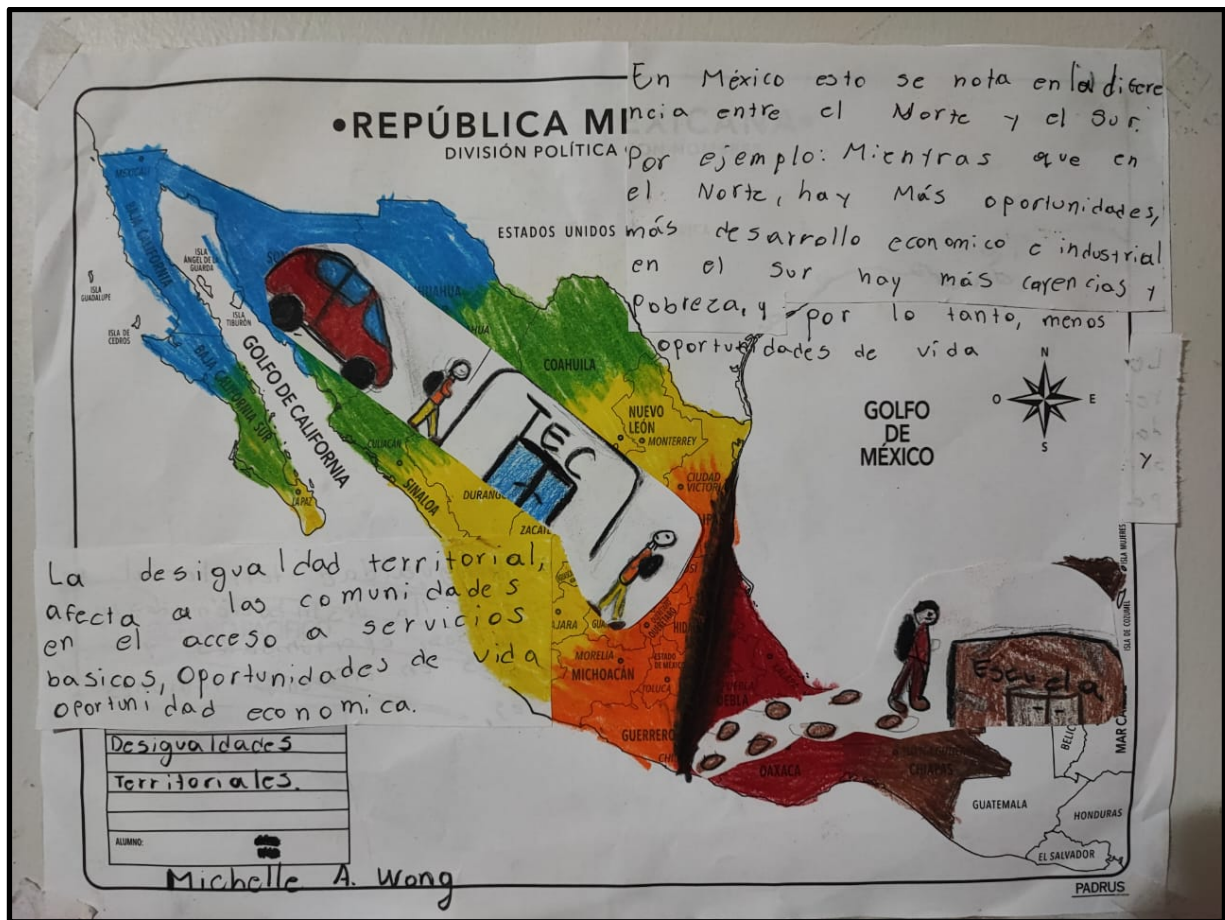 •REPÚBLICA ME
DIVISIÓN POLÍTICA
En México esto se nota en la difere
ncia entre el Norte y el Sur.
Por ejemplo: Mientras que en
el Norte, hay Más oportunidades,
más desarrollo economico e industrial
en el Sur hay más carencias y
Pobreza, y por lo tanto, menos
oportunidades de vida
ESTADOS UNIDOS
MEXICALI
BAJA CALIFORNIA
ISLA
GUADALUPE
ISLA
ÁNGEL DE LA
GUARDA
ISLA
TIBURÓN
ISLA DE
CEDROS
BAJA CALIFORNIA SUR
LA PAZ
GOLFO DE CALIFORNIA
SON
HUAHUA
HUA
COAHUILA
NUEVO
LEÓN
MONTERREY
CULIACÁN
SINALOA
DURANG
ZACAT
CIUDAD
VICTORI
TEC
GOLFO
DE
MÉXICO
N
O
E
S
y
La desigualdad territorial,
afecta a las comunidades
en el acceso a servicios
basicos, Oportunidades de vida
oportunidad economica.
AJARA
GUA
QUERÉTARO
HID
MORELIA
MICHOACÁN
ESTADO
DE MÉXICO
TOLUCA
PUEBLA
EBLA
GUERRERO
OAXACA
CHIAPAS
Escuela
ISLA MUJERES
ISLA DE COZUMEL
MAR CA
BELIC
GUATEMALA
HONDURAS
EL SALVADOR
Desigualdades
Territoriales.
ALUMNO:
Michelle A. Wong
PADRUS